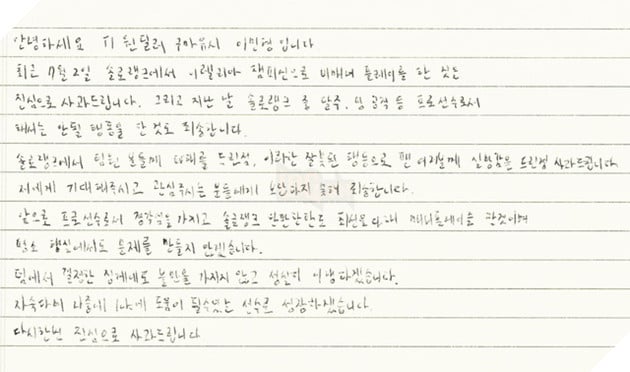 안녕하세요 T1 원딜러 구마유시 이민형 입니다
최근 7월 2일 솔로랭크에서 이렐리아 챔피언으로 비매너 플레이를 한 것은
진심으로 사과드립니다. 그리고 지난 날 솔로랭크 중 탈주, 팀 공격 등 프로선수로서
해서는 안될 행동을 한 것도 죄송합니다.
솔로랭크에서 팀원 분들께 피해를 드린점, 이러한 잘못된 행동으로 팬 여러분께 실망감을 드린점 사과드립니다
저에게 기대해주시고 관심주시는 분들에게 보답하지 못해 죄송합니다.
앞으로 프로선수로서 경각심을 가지고 솔로랭크 한판한판도 최선을 다해 플레이할것이며
평소 행실에서도 문제를 만들지 않겠습니다.
팀에서 결정한 징계에도 불만을 가지지 않고 성실히 이행하겠습니다.
자숙하며 나중에 도움이 될수있는 선수로 성장하겠습니다.
다시한번 진심으로 사과드립니다